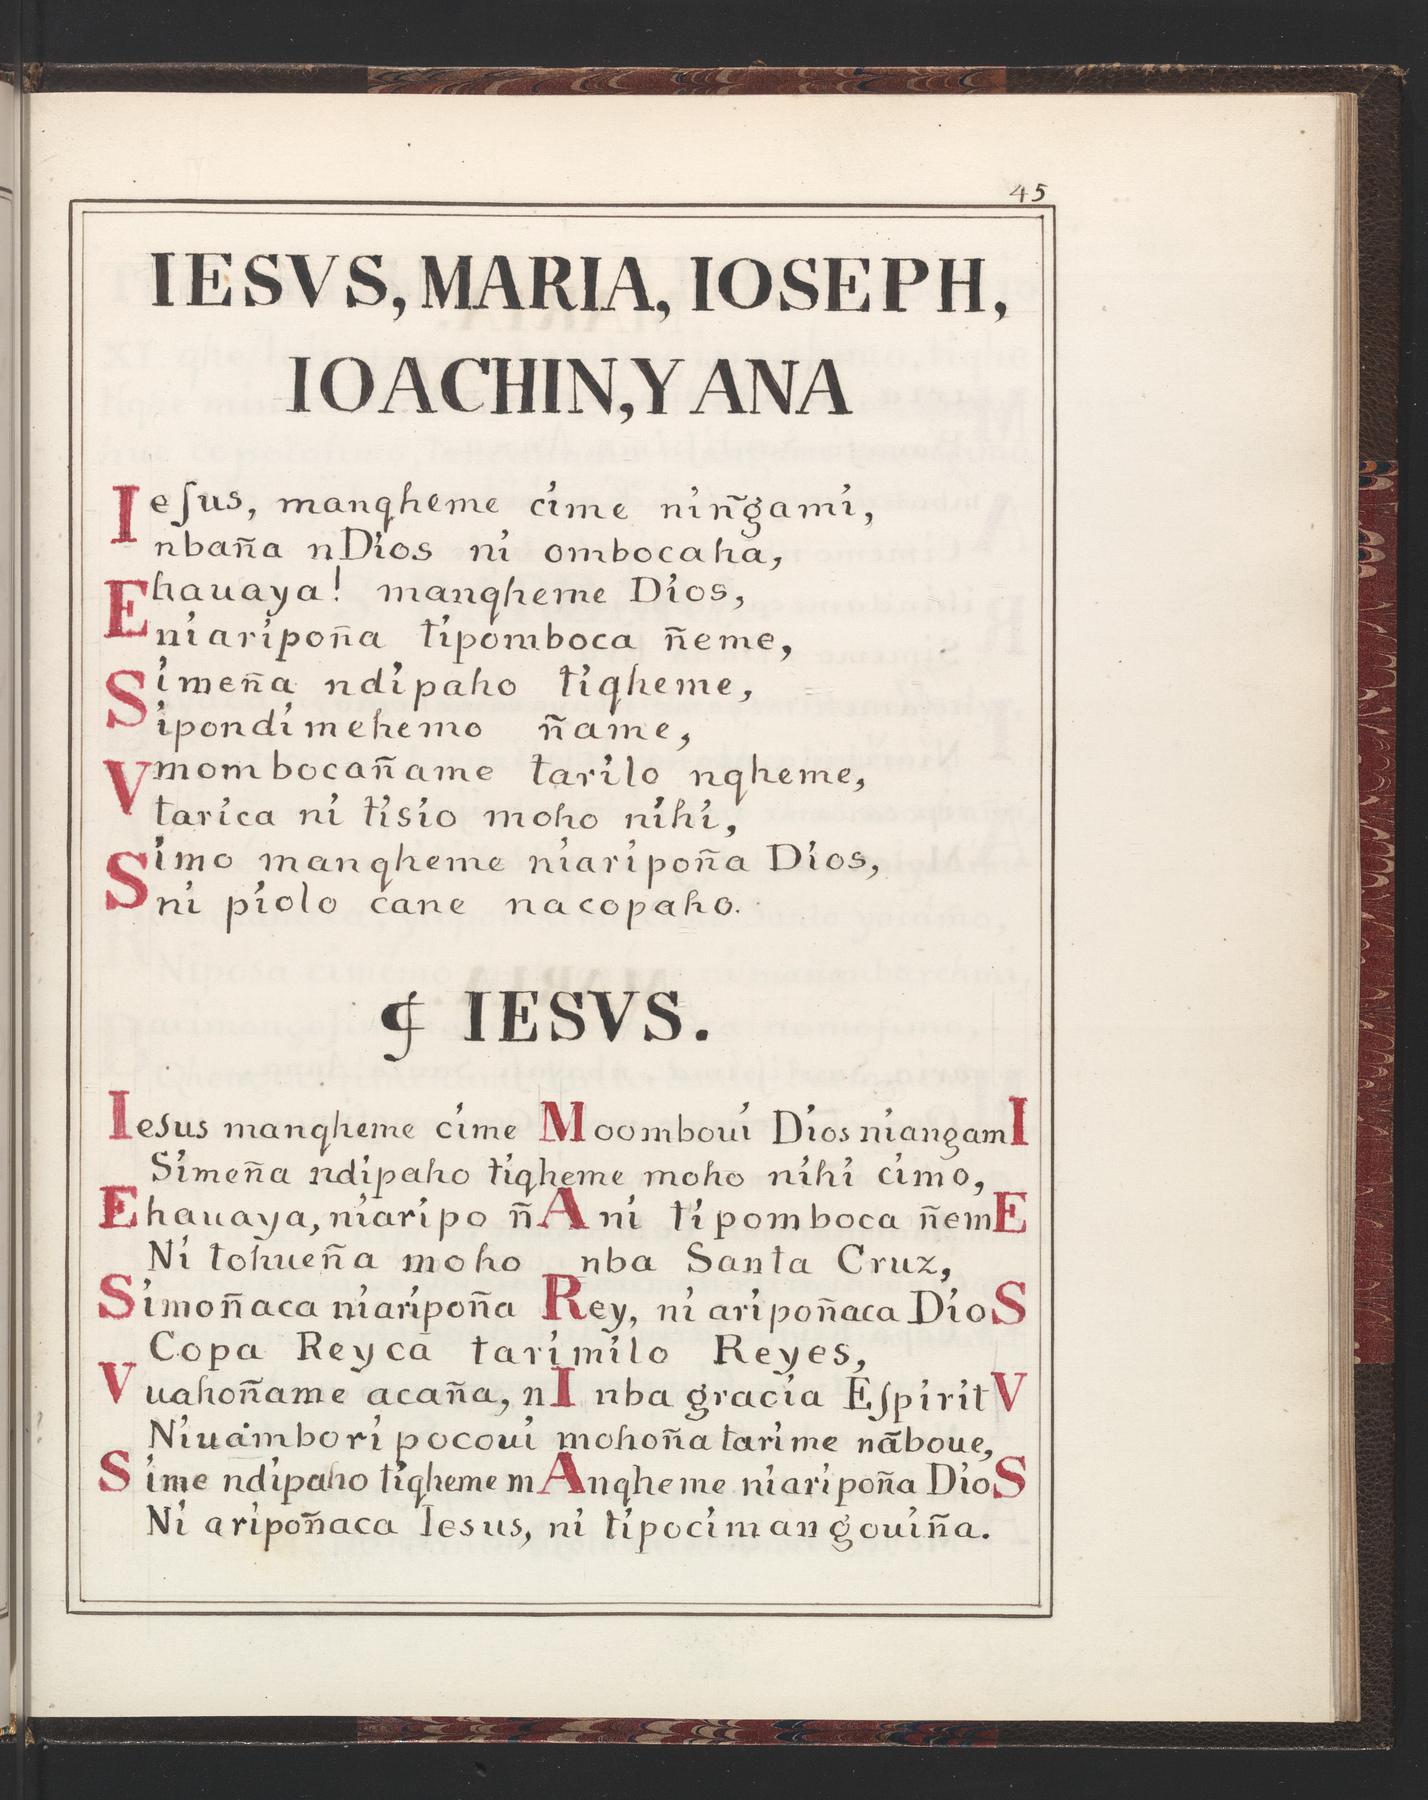 45
IESVS, MARIA, IOSEPH,
IOACHIN, Y ANA
Ieſus, manqheme cime nin̄gami,
nbaña nDios ni ombocaha,
Ehauaya! manqheme Dios,
niaripoña tipomboca ñeme,
Simeña ndipaho tiqheme,
sipondimehemo ñame,
Vmombocañame tarilo nqheme,
tarica ni tisio moho nihi,
Simo manqheme niaripoña Dios,
ni piolo cane nacopaho.
¶ IESVS.
Iesus manqheme cime Moomboui Dios niangamI
Simeña ndipaho tiqheme moho nihi cimo,
Ehauaya, niaripo ñAni tipomboca ñemE
Ni tohueña moho nba Santa Cruz,
Simoñaca niaripoña Rey, ni aripoñaca DioS
Copa Reyca tarimilo Reyes,
Vuahoñame acaña, nI nba gracia EſpiritV
Niuambori pocoui mohoña tarime nāboue,
Sime ndipaho tiqheme mAnqheme niaripoña DioS
Ni aripoñaca Iesus, ni tipocimangouiña.